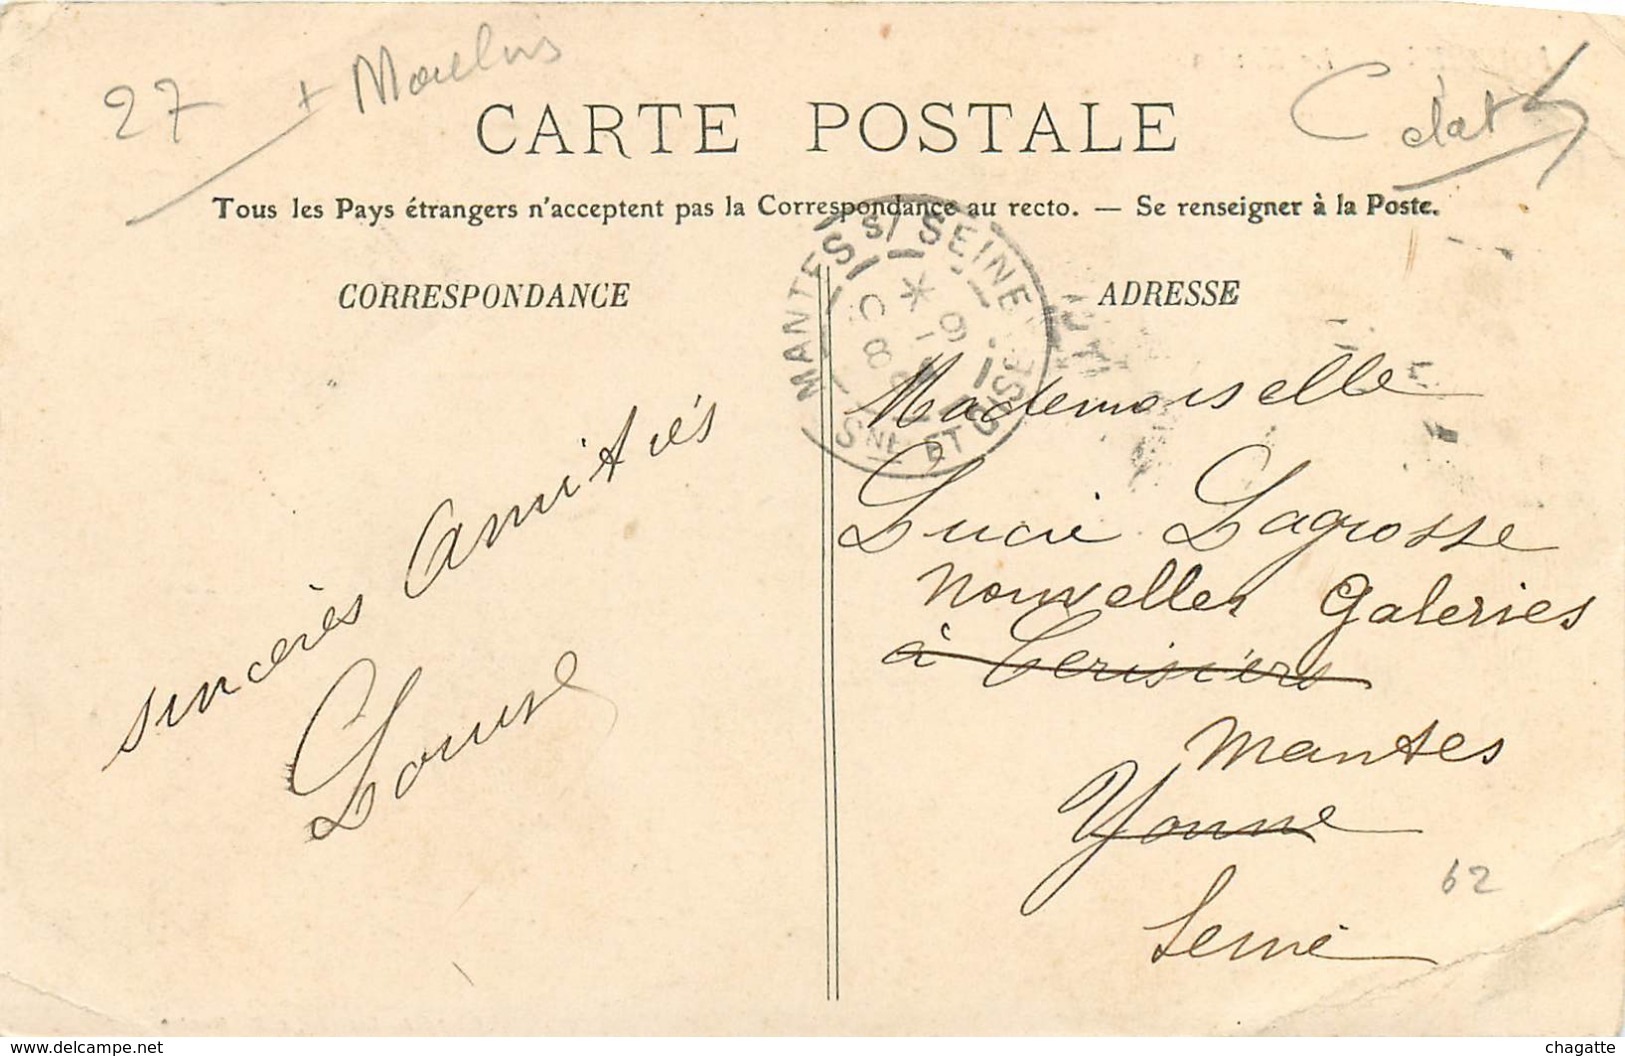 27
+ Moulins
C
état
CARTE POSTALE
Tous les Pays étrangers n'acceptent pas la Correspondance au recto. — Se renseigner à la Poste.
CORRESPONDANCE
ADRESSE
MANTES S/ SEINE
SNE ET OISE
sincères amitiés
Louise
Mademoiselle
Lucie Lagrosse
Nouvelles Galeries
à Cerisiers
Mantes
Yonne
Seine
62
www.delcampe.net
chagatte